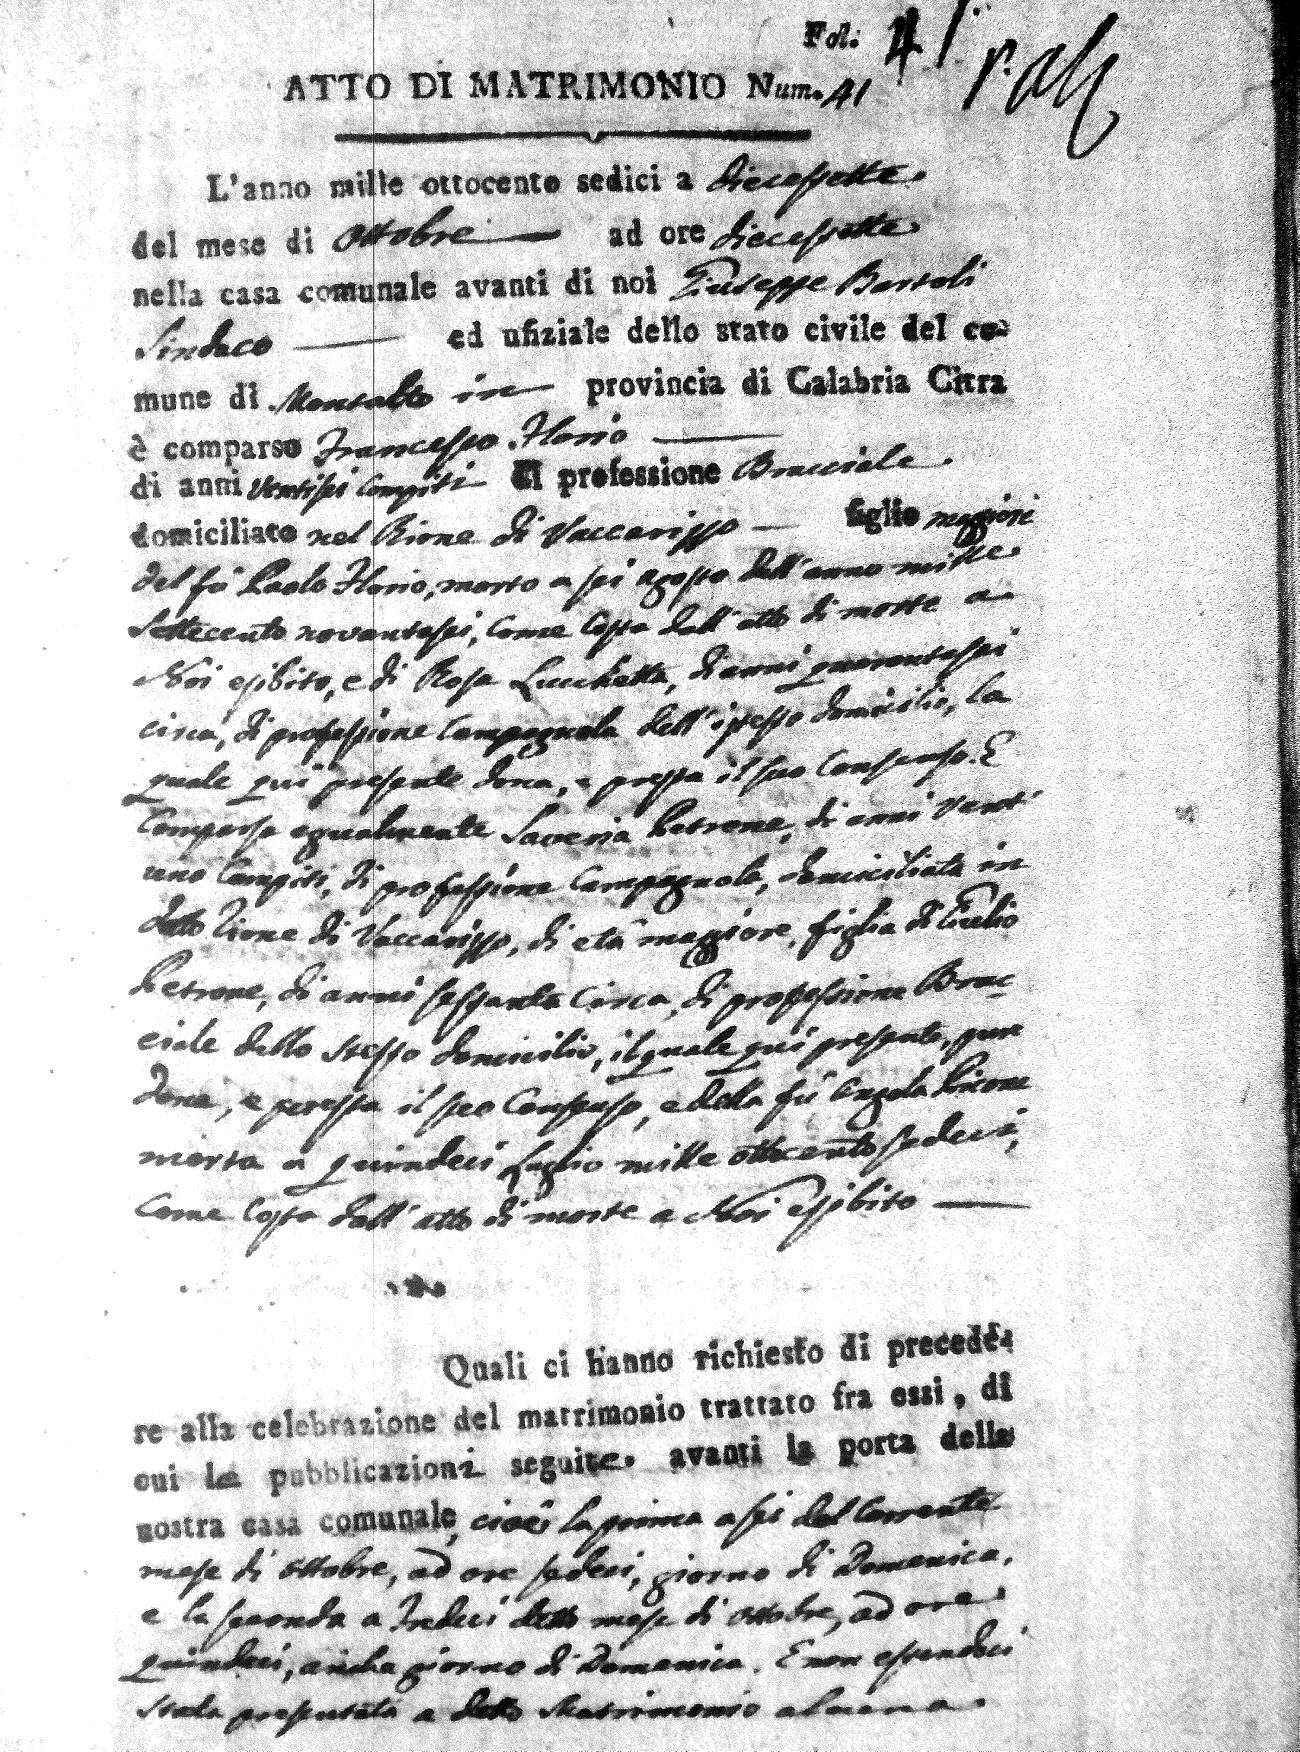 Fol. 41
ATTO DI MATRIMONIO Num. 41
L'anno mille ottocento sedici a diecessette
del mese di Ottobre ad ore diecessette
nella casa comunale avanti di noi Giuseppe Bartoli
Sindaco ed ufiziale dello stato civile del co-
mune di Montalto in provincia di Calabria Citra
è comparso Francesco Florio
di anni ventisei compiti di professione Bracciale
domiciliato nel Rione di Vaccarizzo figlio maggiore
del fù Paolo Florio, morto a sei agosto dell'anno mille
Settecento novantasei, come costa dall'atto di morte a
Noi esibito, e di Rosa Lucchetta, di anni quarantasei
circa, di professione Campagnola dell'istesso domicilio, la
quale qui presente dona, e presta il suo Consenso. E
Comparsa egualmente Saveria Petrone, di anni vent'
uno Compiti, di professione Campagnola, domiciliata in
detto Rione di Vaccarizzo, di età maggiore, figlia di Giulio
Petrone, di anni sessanta Circa, di professione Brac-
ciale dello stesso domicilio, il quale qui presente, pure
dona, e presta il suo Consenso, e della fù Angela Pirone
morta a quindeci Luglio mille ottocento sedeci,
Come Costa dall'atto di morte a Noi esibito
Quali ci hanno richiesto di precede-
re alla celebrazione del matrimonio trattato fra essi, di
cui le pubblicazioni seguite avanti la porta della
nostra casa comunale, cioè la prima a sei del Corrente
mese di ottobre, ad ore sedeci, giorno di Domenica,
e la seconda a Tredeci detto mese di ottobre, ad ore
quindeci, anche giorno di Domenica. E non essendoci
stata presentata a detto Matrimonio alcuna